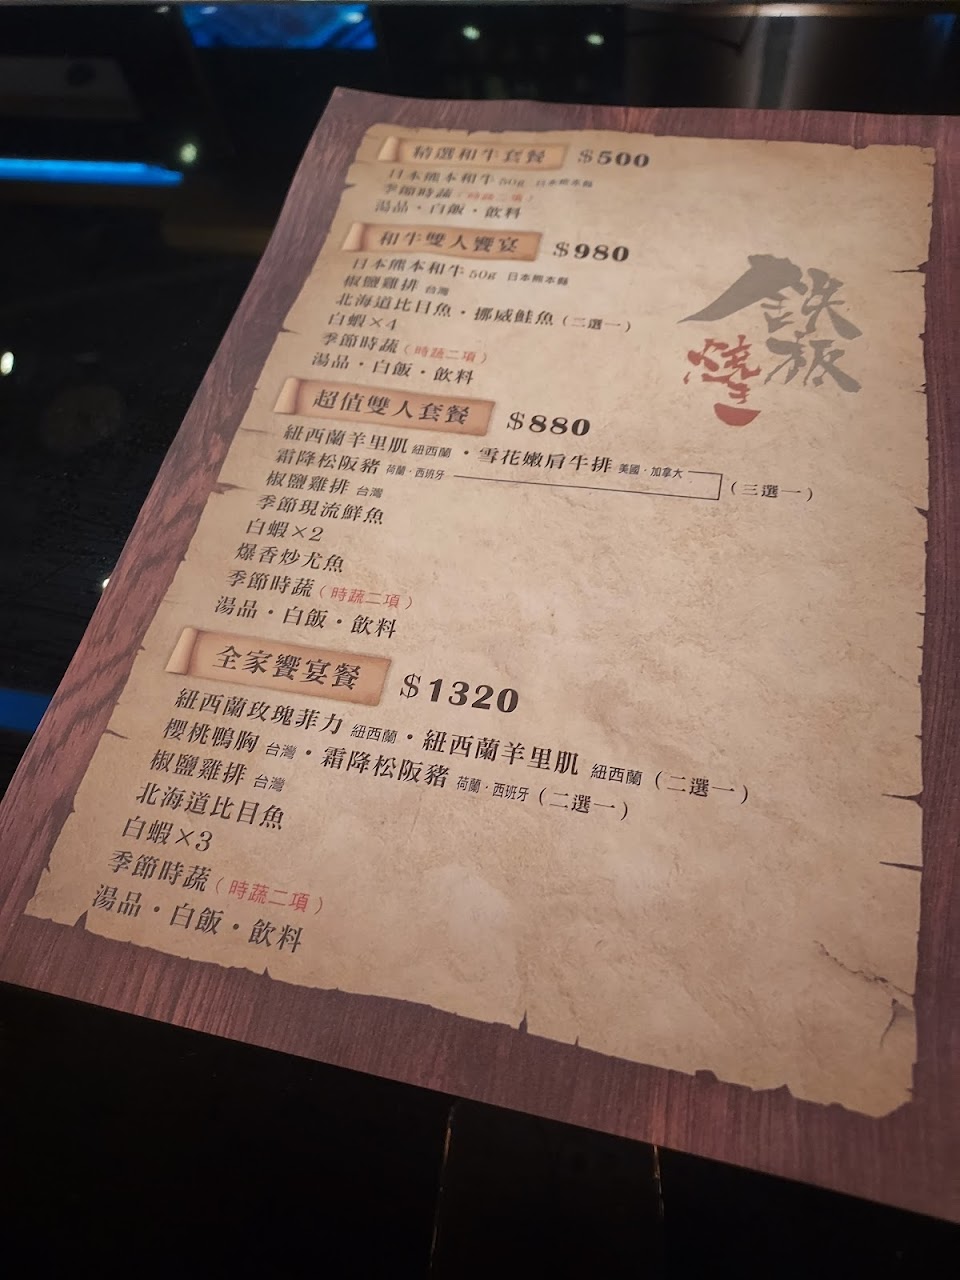 精選和牛套餐 $500
日本熊本和牛 50g 日本熊本縣
季節時蔬(時蔬二項)
湯品・白飯・飲料
和牛雙人饗宴 $980
日本熊本和牛 50g 日本熊本縣
椒鹽雞排 台灣
北海道比目魚・挪威鮭魚(二選一)
白蝦×4
季節時蔬(時蔬二項)
湯品・白飯・飲料
超值雙人套餐 $880
紐西蘭羊里肌 紐西蘭・雪花嫩肩牛排 美國・加拿大
霜降松阪豬 荷蘭・西班牙 (三選一)
椒鹽雞排 台灣
季節現流鮮魚
白蝦×2
爆香炒尤魚
季節時蔬(時蔬二項)
湯品・白飯・飲料
全家饗宴餐 $1320
紐西蘭玫瑰菲力 紐西蘭・紐西蘭羊里肌 紐西蘭(二選一)
櫻桃鴨胸 台灣・霜降松阪豬 荷蘭・西班牙(二選一)
椒鹽雞排 台灣
北海道比目魚
白蝦×3
季節時蔬(時蔬二項)
湯品・白飯・飲料
鉄板
焼き